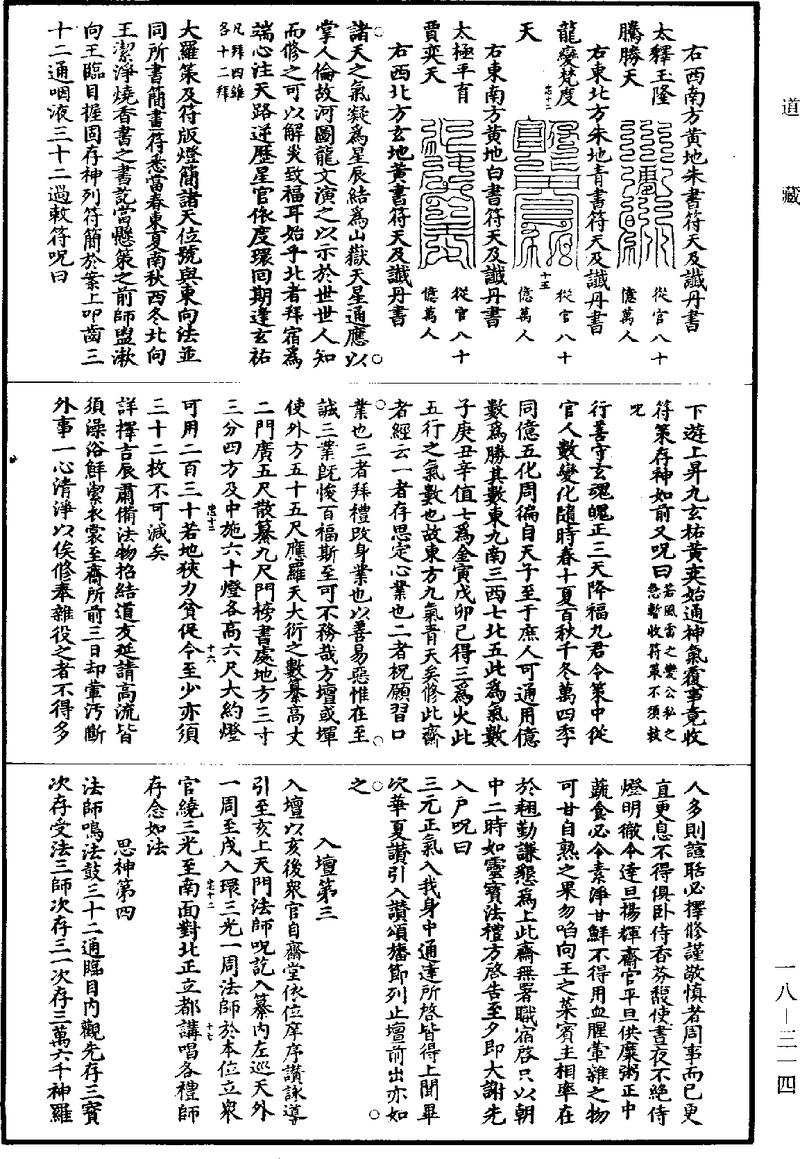 道藏
右西南方黃地朱書符天及讖丹書
太釋玉隆
騰勝天
從官八十
億萬人
右東北方朱地青書符天及讖丹書
龍變梵度
天
忠十二
十五
從官八十
億萬人
右東南方黃地白書符天及讖丹書
太極平育
賈奕天
從官八十
億萬人
右西北方玄地黃書符天及讖丹書
諸天之氣凝為星辰結為山嶽天星通應以
掌人倫故河圖龍文演之以示於世世人知
而修之可以解災致福耳始乎北者拜宿為
端心注天路逆歷星官依度環回期逢玄祐
凡拜四維
各十二拜
大羅策及符版燈簡諸天位號與東向法並
同所書簡畫符悉當春東夏南秋西冬北向
王潔淨燒香書之書訖當懸策之前師盟漱
向王臨目握固存神列符簡於案上叩齒三
十二通咽液三十二過敕符呪曰
下遊上昇九玄祐黃奕始通神氣覆事竟收
符策存神如前又呪曰
若風雷之變公私之
急暫收符策不須敕
呪
行善守玄魂魄正三天降福九君令策中從
官人數變化隨時春十夏百秋千冬萬四季
同億五化周徧自天子至于庶人可通用億
數為勝其數東九南三西七北五此為氣數
子庚丑辛值七為金寅戊卯己得三為火此
五行之氣數也故東方九氣青天矣修此齋
者經云一者存思定心業也二者祝願習口
業也三者拜禮改身業也以善易惡惟在至
誠三業既悛百福斯至可不務哉方壇或墠
使外方五十五尺應羅天大衍之數纂高丈
二門廣五尺散纂九尺門榜書處地方三寸
三分四方及中施六十燈各高六尺大約燈
忠十二
十六
可用二百三十若地狹力貧促令至少亦須
三十二枚不可減矣
詳擇吉辰肅備法物招結道友延請高流皆
須澡浴鮮潔衣裳至齋所前三日却葷汚斷
外事一心清淨以俟修奉雜役之者不得多
人多則諠聒必擇修謹敬慎者周事而已更
直更息不得俱臥侍香芬馥使晝夜不絕侍
燈明徹令達旦揚輝齋官平旦供糜粥正中
蔬食必令素淨甘鮮不得用血腥葷雜之物
可甘自熟之果勿啗向王之菜賓主相率在
於翹勤謙懇為上此齋無署職宿啓只以朝
中二時如靈寶法禮方啓告至夕即大謝先
入戶呪曰
三元正氣入我身中通達所啓皆得上聞畢
次華夏讚引入讚頌旛節列止壇前出亦如
之
入壇第三
入壇以亥後眾官自齋堂依位庠序讚詠導
引至亥上天門法師呪訖入纂內左巡天外
一周至戌入環三光一周法師於本位立眾
忠十二
十七
官繞三光至南面對北正立都講唱各禮師
存念如法
思神第四
法師鳴法鼓三十二通臨目內觀先存三寶
次存受法三師次存三一次存三萬六千神羅
一八－三一四